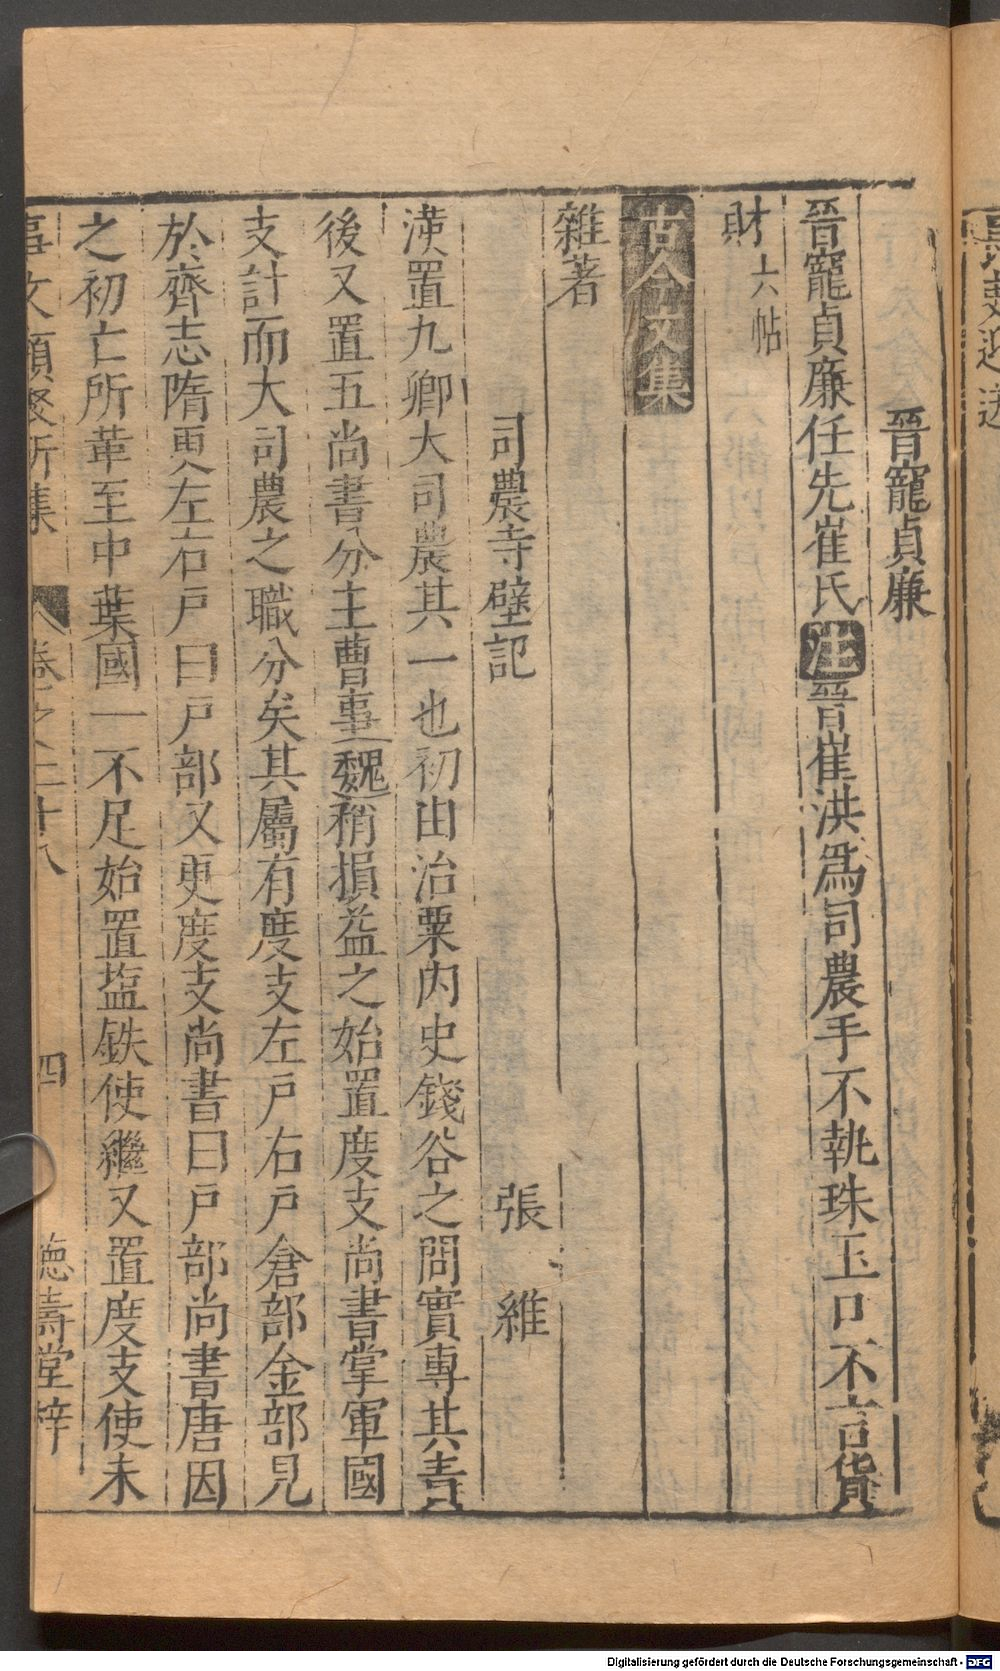 晉寵貞廉
晉寵貞廉任先崔氏注晉崔洪爲司農手不執珠玉口不言貨
財六帖
古今文集
雜著
司農寺壁記 張維
漢置九卿大司農其一也初由治粟内史錢谷之問實專其責
後又置五尚書分主曹事魏稍損益之始置度支尚書掌軍國
支計而大司農之職分矣其屬有度支左戸右戸倉部金部見
於齊志隋更左右戸曰戸部又更度支尚書曰戸部尚書唐因
之初亡所革至中葉國一不足始置塩鉄使繼又置度支使未
事文類聚新集 卷之二十八 四 德壽堂梓
Digitalisierung gefördert durch die Deutsche Forschungsgemeinschaft - DFG